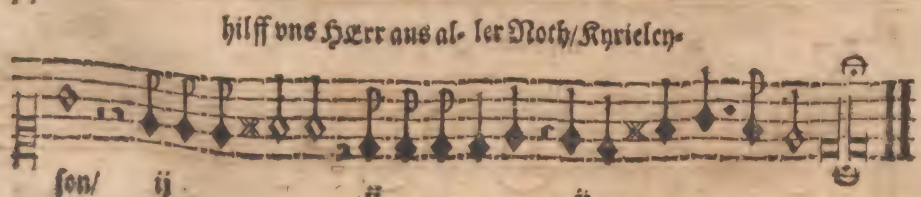 hilff vns HErr aus al- ler Noth/ Kyrieley-
son/ ij ij ij